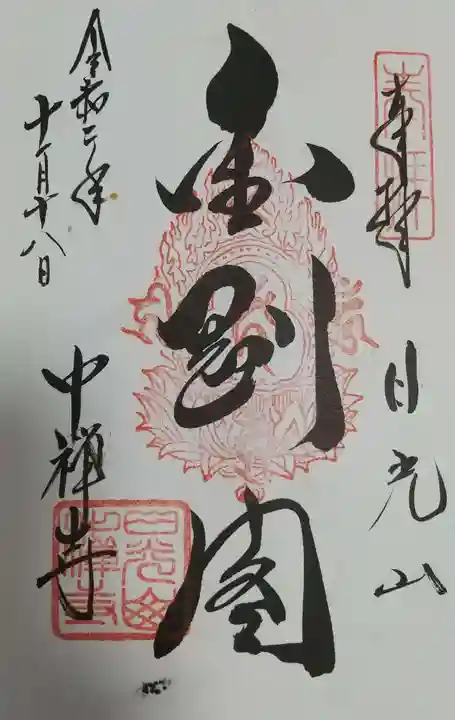 奉拝 日光山
金剛閣
令和二年
十一月十八日
中禅寺
日光山
中禅寺